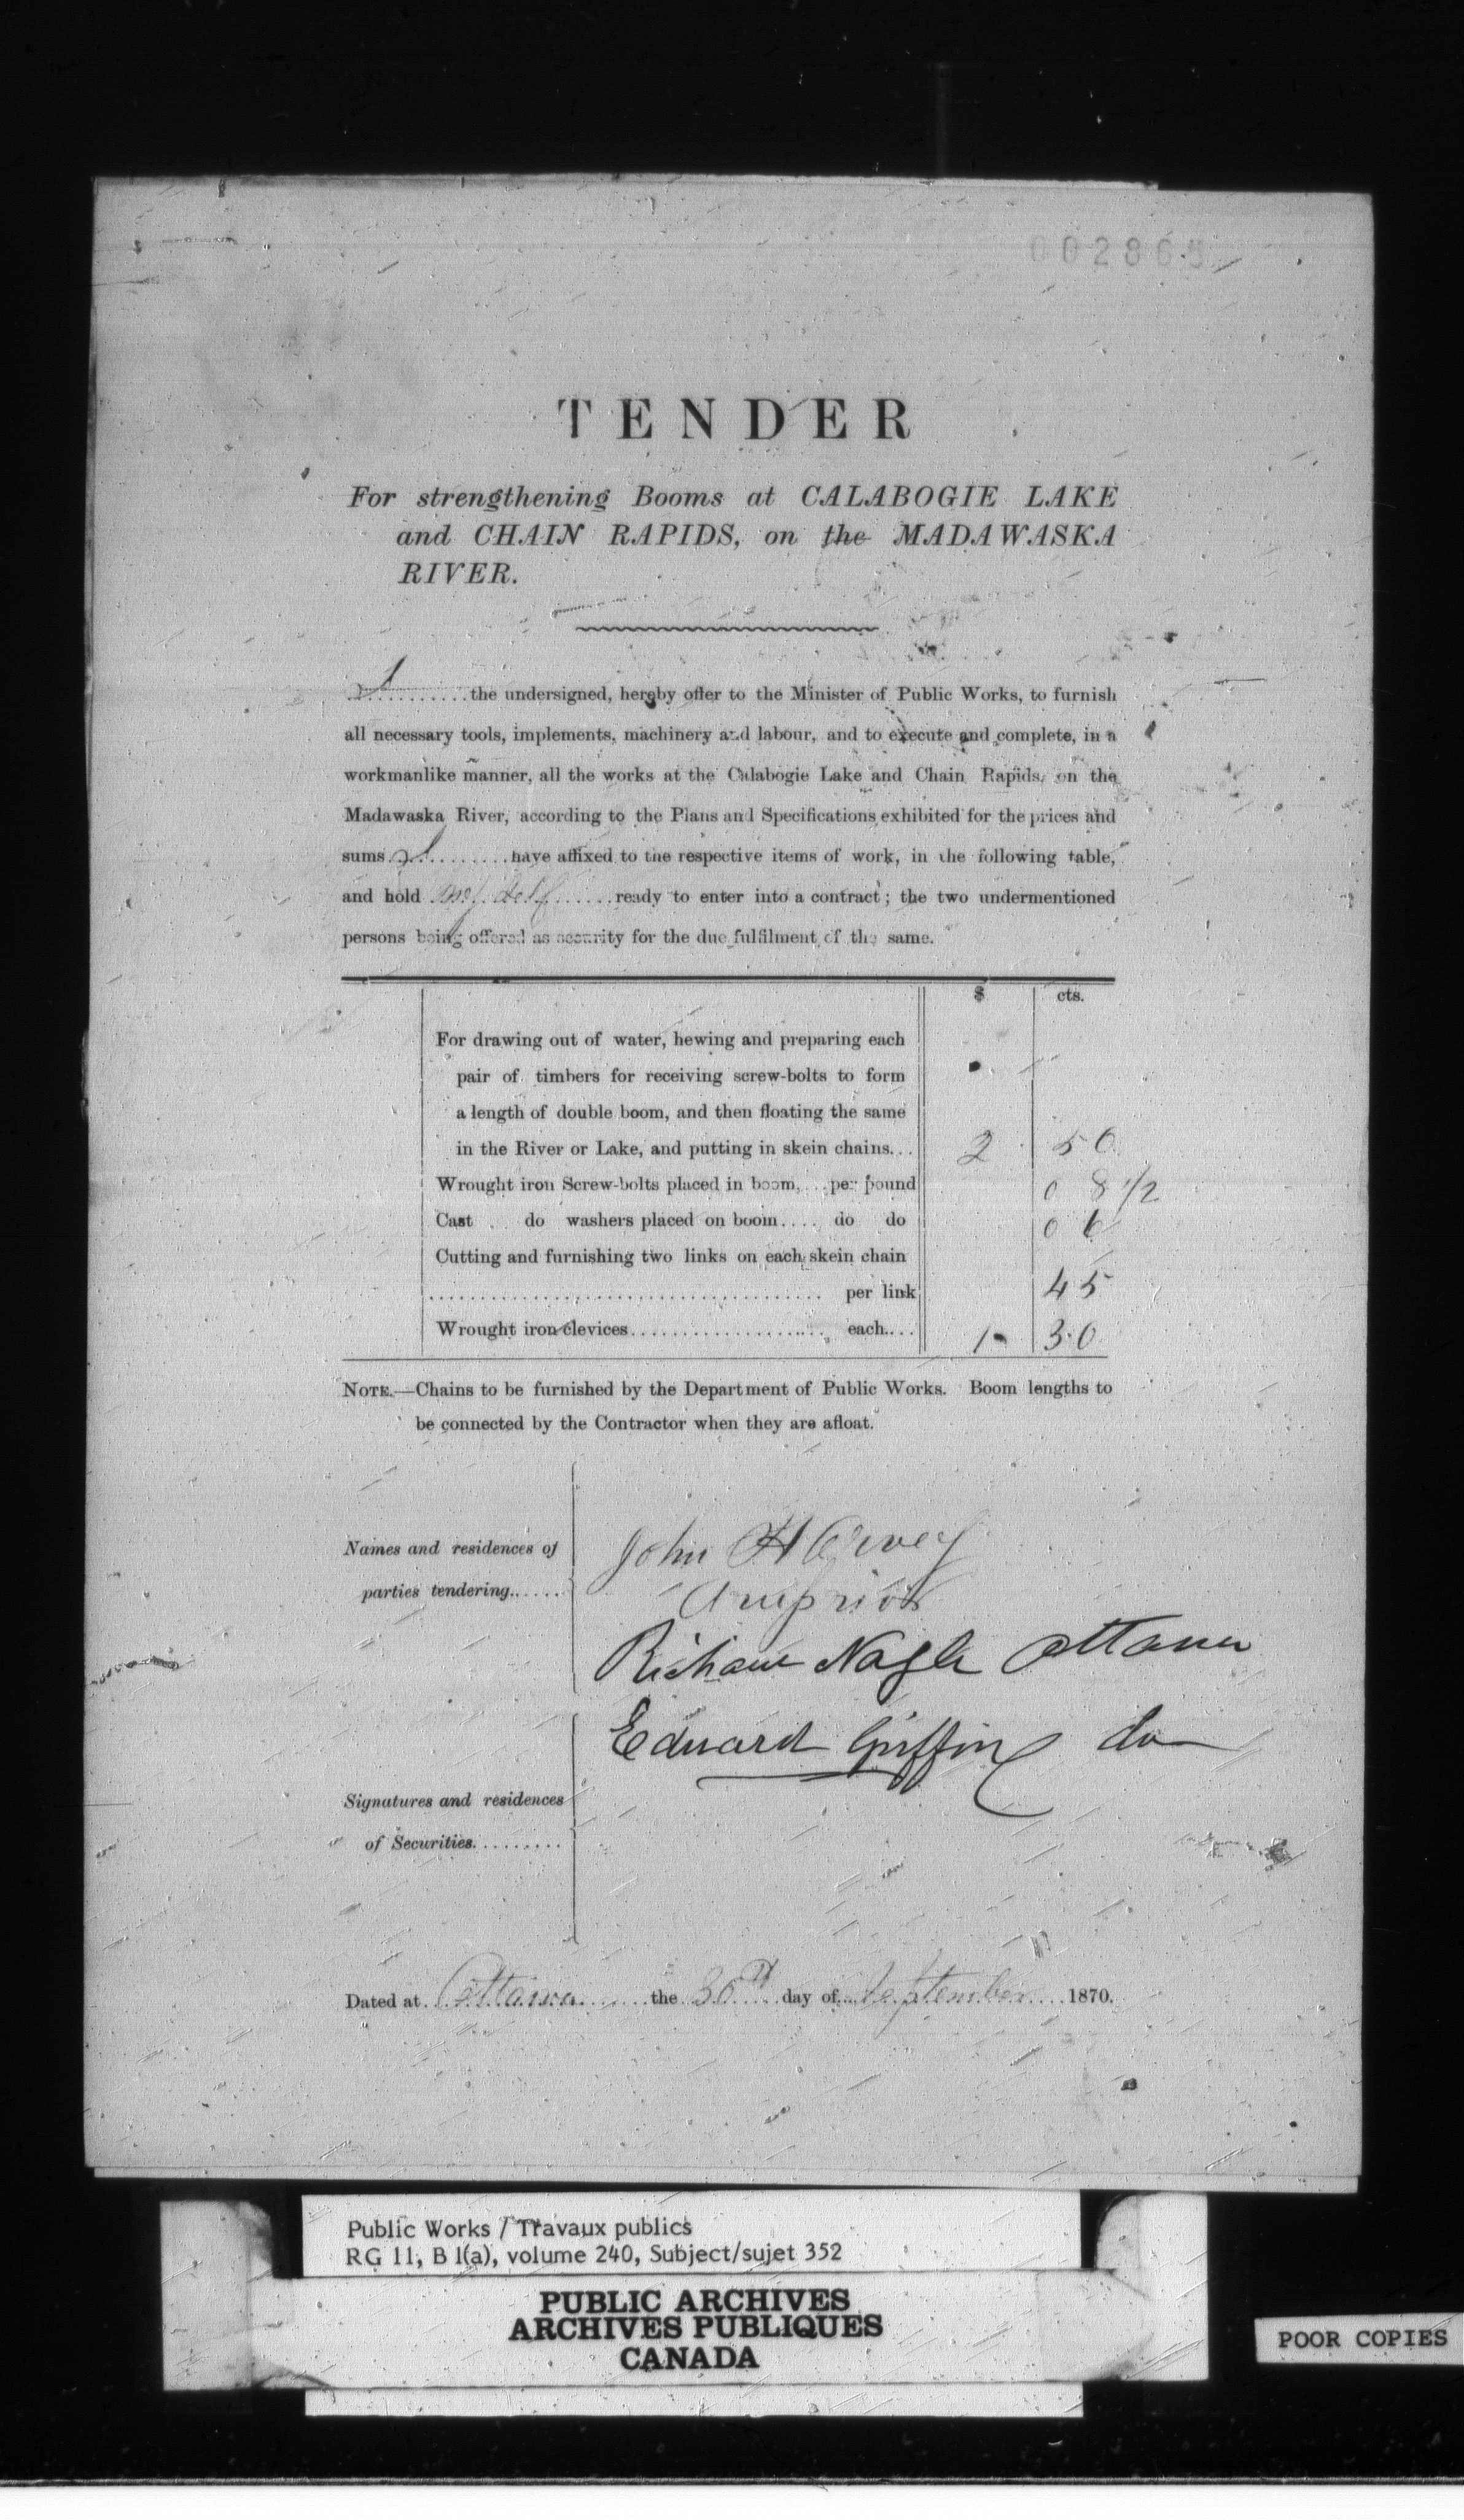 TENDER
For strengthening Booms at CALABOGIE LAKE
and CHAIN RAPIDS, on the MADAWASKA
RIVER.
I.........the undersigned, hereby offer to the Minister of Public Works, to furnish
all necessary tools, implements, machinery and labour, and to execute and complete, in a
workmanlike manner, all the works at the Calabogie Lake and Chain Rapids, on the
Madawaska River, according to the Plans and Specifications exhibited for the prices and
sums I.........have affixed to the respective items of work, in the following table,
and hold my self......ready to enter into a contract; the two undermentioned
persons being offered as security for the due fulfilment of the same.
$ cts.
For drawing out of water, hewing and preparing each
pair of timbers for receiving screw-bolts to form
a length of double boom, and then floating the same
in the River or Lake, and putting in skein chains... 2 50
Wrought iron Screw-bolts placed in boom,...per pound 0 8 1/2
Cast do washers placed on boom.... do do 0 6
Cutting and furnishing two links on each skein chain
.................................... per link 45
Wrought iron clevices................... each.... 1 30
NOTE.—Chains to be furnished by the Department of Public Works. Boom lengths to
be connected by the Contractor when they are afloat.
Names and residences of
parties tendering......
John Harvey
Arnprior
Richard Nagle Ottawa
Edward Griffin do
Signatures and residences
of Securities.........
Dated at Ottawa the 30th day of September 1870.
Public Works / Travaux publics
RG 11, B 1(a), volume 240, Subject/sujet 352
PUBLIC ARCHIVES
ARCHIVES PUBLIQUES
CANADA
POOR COPIES